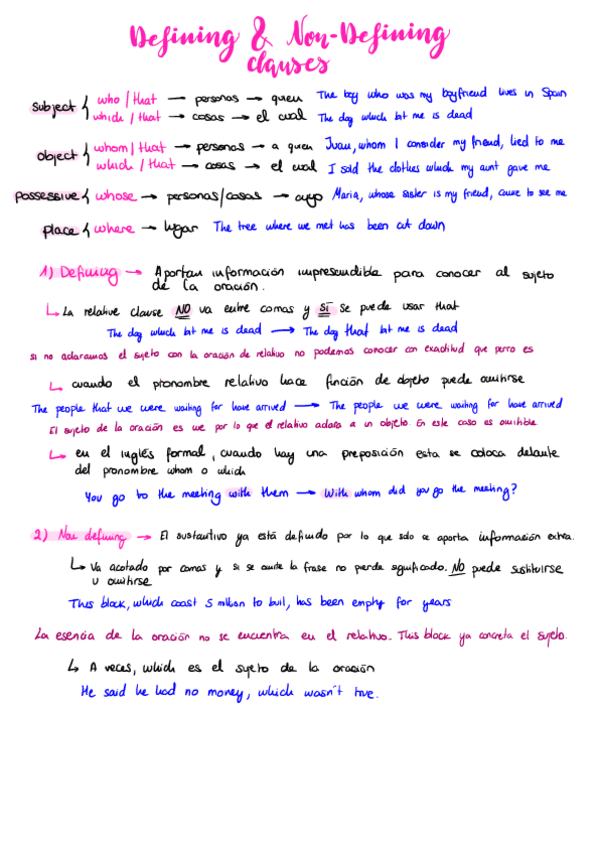 Defining & Non-Defining
clauses
subject { who / that → personas → quien The boy who was my boyfriend lives in Spain
which / that → cosas → el cual The dog which bit me is dead
object { whom / that → personas → a quien Juan, whom I consider my friend, lied to me
which / that → cosas → el cual I sold the clothes which my aunt gave me
possessive { whose → personas/cosas → cuyo Maria, whose sister is my friend, came to see me
place { where → lugar The tree where we met has been cut down
1) Defining → Aportan información imprescindible para conocer al sujeto
de la oración.
↳ La relative clause NO va entre comas y SÍ se puede usar that
The dog which bit me is dead → The dog that bit me is dead
si no aclaramos el sujeto con la oración de relativo no podemos conocer con exactitud que perro es
↳ cuando el pronombre relativo hace función de objeto puede omitirse
The people that we were waiting for have arrived → The people we were waiting for have arrived
El sujeto de la oración es we por lo que el relativo aclara a un objeto. En este caso es omitible
↳ en el inglés formal, cuando hay una preposición esta se coloca delante
del pronombre whom o which
You go to the meeting with them → With whom did you go the meeting?
2) Non defining → El sustantivo ya está definido por lo que solo se aporta información extra.
↳ Va acotado por comas y si se omite la frase no pierde significado. NO puede sustituirse
u omitirse
This block, which coast 5 million to buil, has been empty for years
La esencia de la oración no se encuentra en el relativo. This block ya concreta el sujeto.
↳ A veces, which es el sujeto de la oración
He said he had no money, which wasn't true.